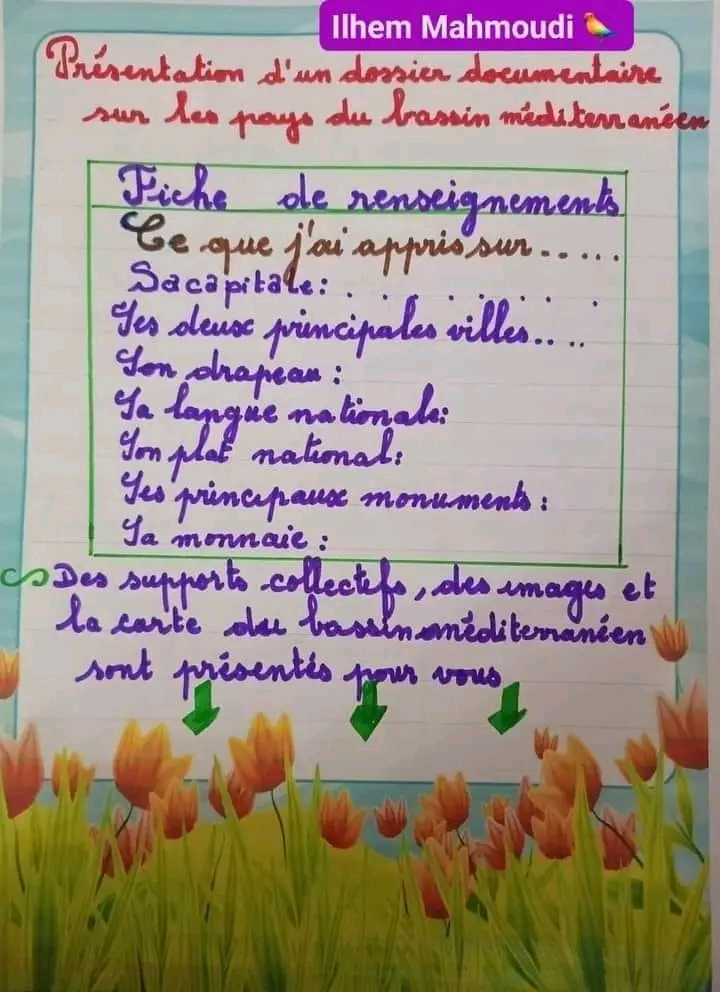 Ilhem Mahmoudi
Présentation d'un dossier documentaire
sur les pays du bassin méditerranéen
Fiche de renseignements
Ce que j'ai appris sur.....
Sa capitale: . . . . . . . . . .
Ses deux principales villes.. ..
Son drapeau :
Sa langue nationale:
Son plat national:
Ses principaux monuments :
Sa monnaie :
Des supports collectifs, des images et
la carte du bassin méditerranéen
sont présentés pour vous